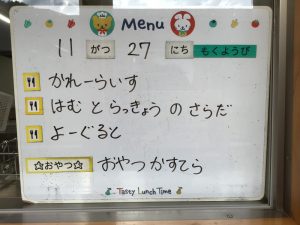 Menu
11 がつ 27 にち もくようび
かれーらいす
はむ と らっきょう の さらだ
よーぐると
☆おやつ☆ おやつ かすてら
Tasty Lunch Time